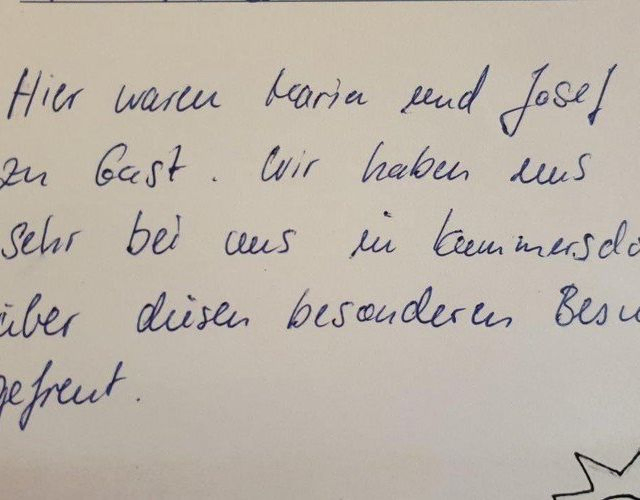 Hier waren Maria und Josef
zu Gast. Wir haben uns
sehr bei uns in Kummersdo
über diesen besonderen Besu
gefreut.